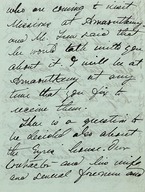 who are coming to visit
Missions at Amanzimtoti
and Mr. said that
he would talk with you
about it. I will be at
Amanzimtoti at any
time that you fix to
receive them.
There is a question to
be decided also about
the lease. Our
Contractor and his wife
and several foremen and